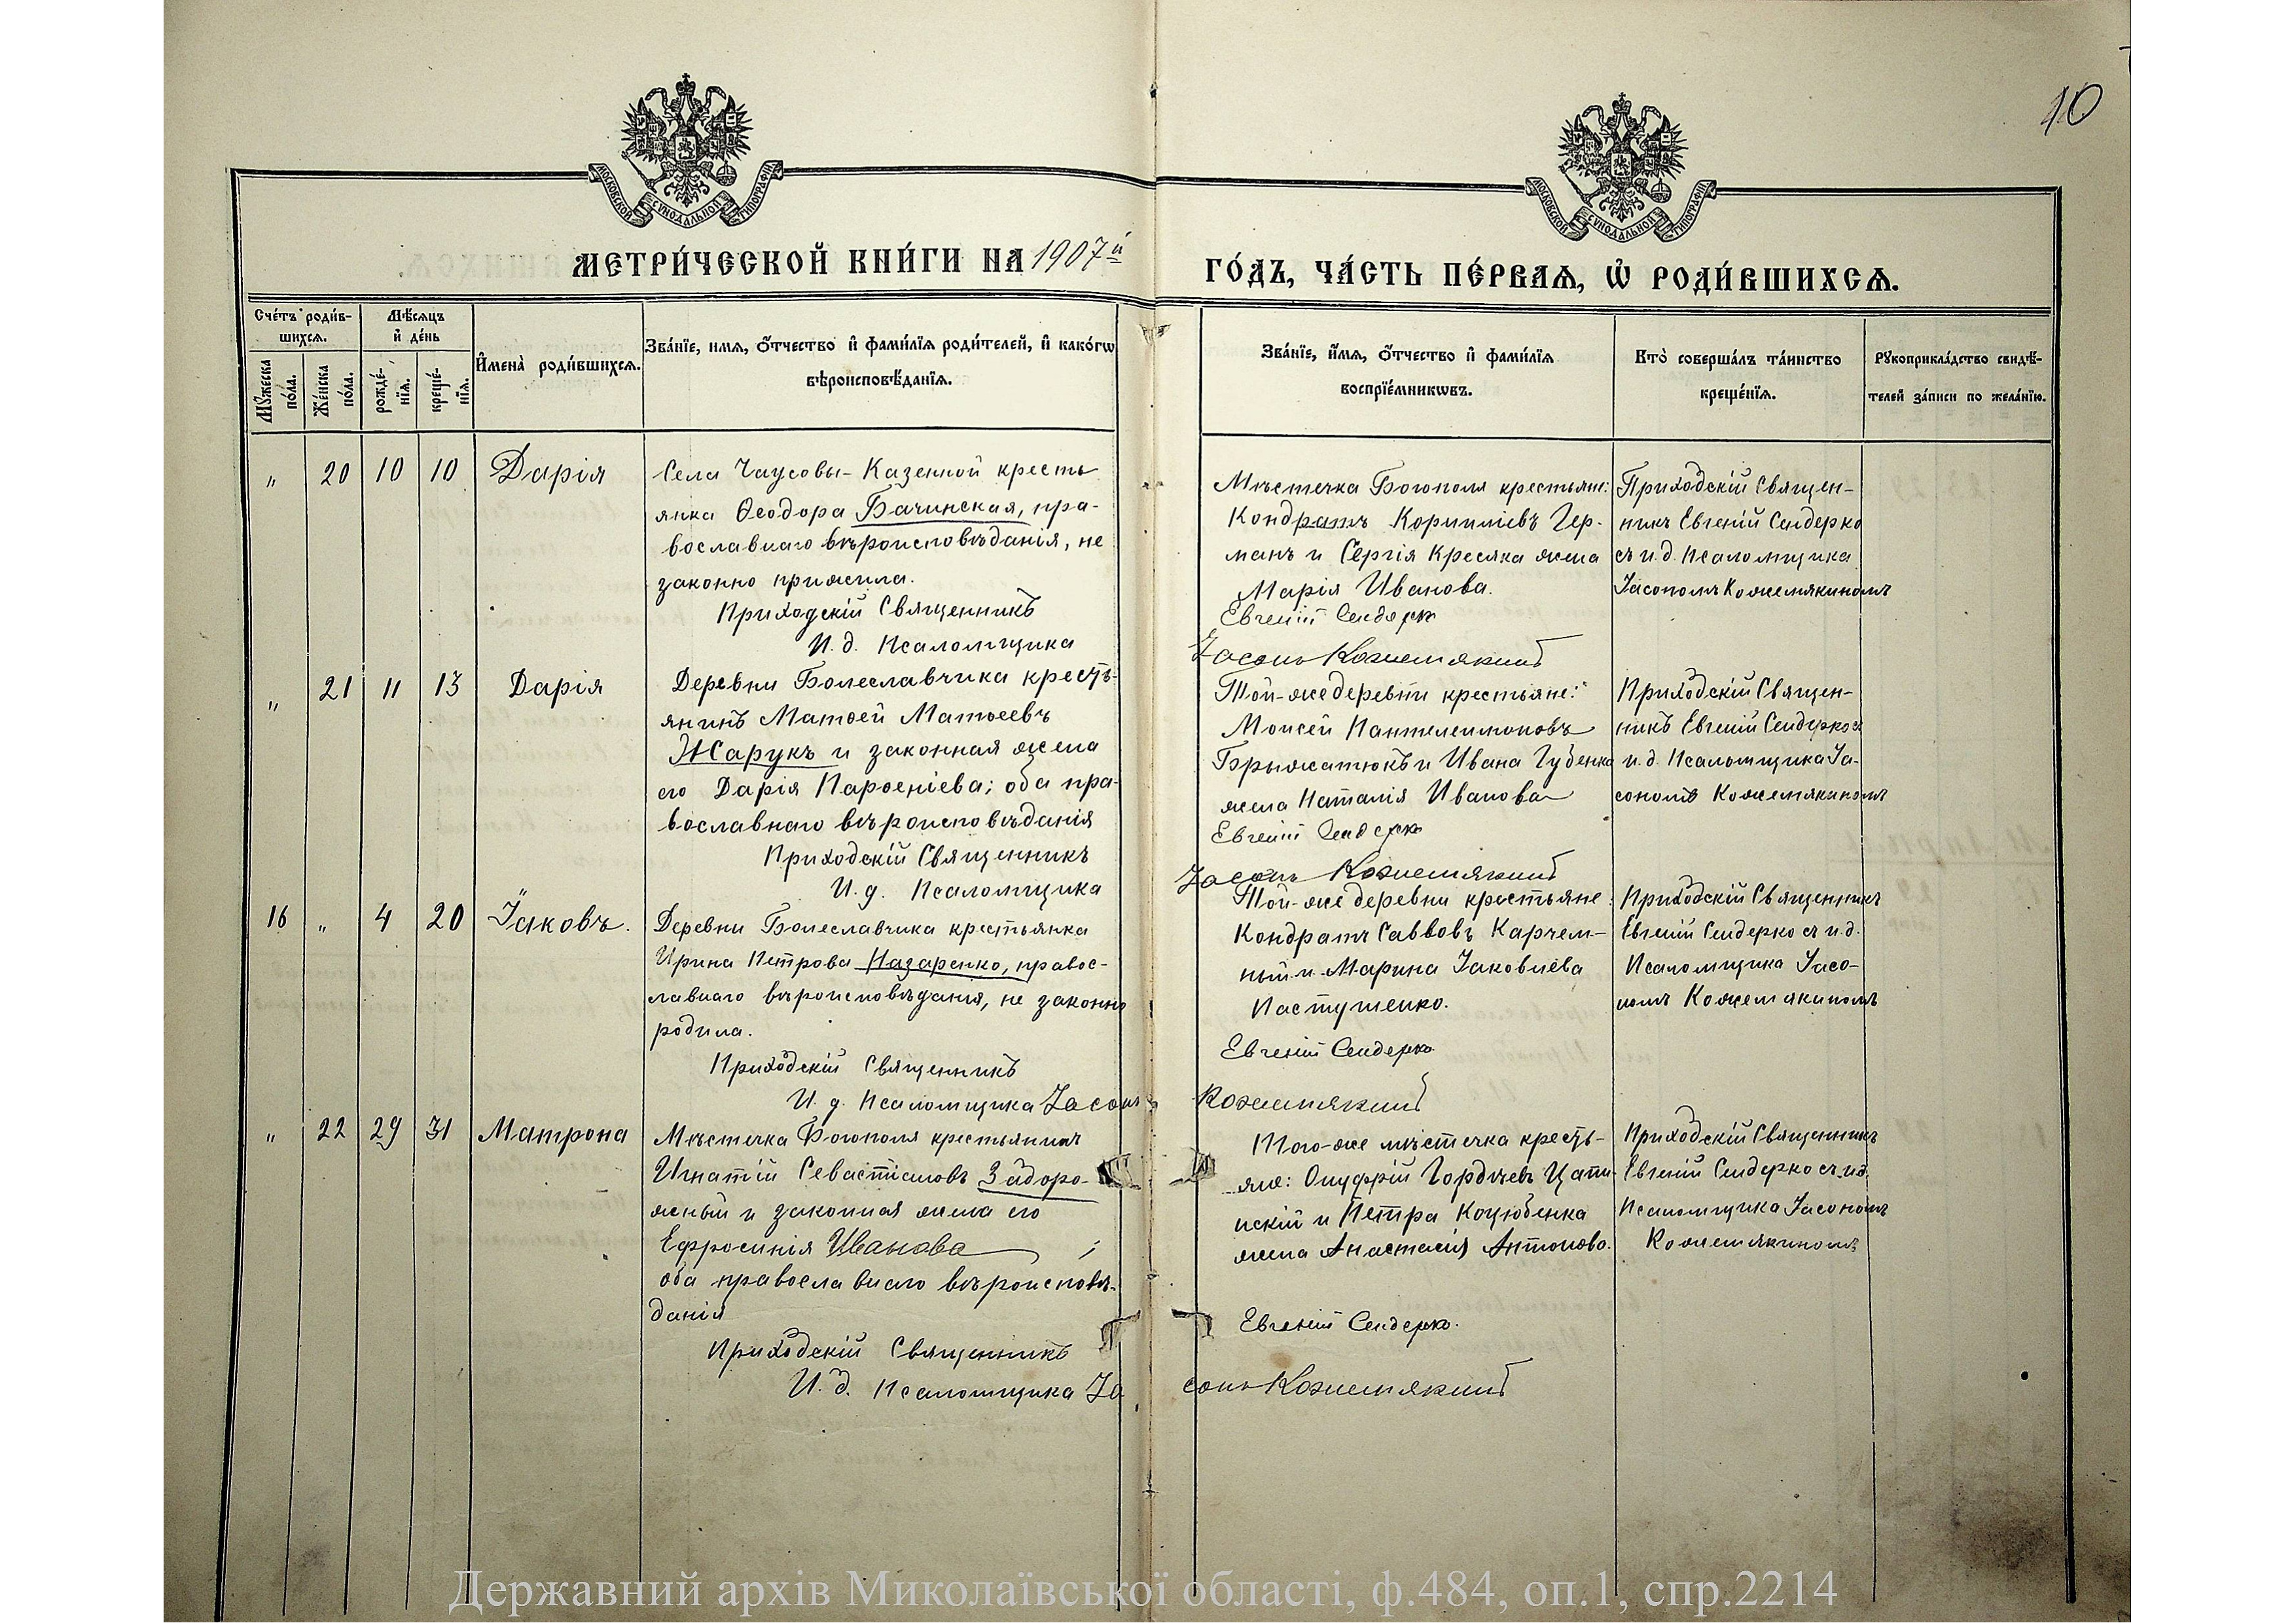 10
МОСКОВСКОЙ СУНОДАЛЬНОЙ ТИПОГРАФІИ
МОСКОВСКОЙ СУНОДАЛЬНОЙ ТИПОГРАФІИ
МЕТРИ́ЧЕСКОЙ КНИ́ГИ НА 1907й
ГО́ДЪ, ЧА́СТЬ ПЕ́РВАѦ, Ѡ РОДИ́ВШИХСѦ.
Сче́тъ роди́в-
шихсѧ.
Мѣ́сѧцъ
и҆ де́нь
Мꙋ́жеска по́ла.
Же́нска по́ла.
рожде́-нїѧ.
креще́-нїѧ.
И҆мена̀ роди́вшихсѧ.
Зва́нїе, и҆мѧ, ѻ҆́тчество и҆ фами́лїѧ роди́телей, и҆ како́гѡ
вѣроисповѣ́данїѧ.
Зва́нїе, и҆́мѧ, ѻ҆́тчество и҆ фами́лїѧ
воспрїе́мникѡвъ.
Кто̀ соверша́лъ та́инство
креще́нїѧ.
Рꙋкоприкла́дство свидѣ́-
телей за́писи по жела́нїю.
" 20 10 10 Дарія
Села Чаусовы-Казенной кресть
янка Ѳеодора Бачинская, пра-
вославнаго вѣроисповѣданія, не
законно прижила.
Приходскій Священникъ
И. д. Псаломщика
Мѣстечка Богополя крестьяне:
Кондратъ Корниліевъ Гер-
манъ и Сергія Кресяка жена
Марія Иванова.
Евгеній Сендерко
Іасонъ Кожемякинъ
Приходскій Священ-
никъ Евгеній Сендерко
съ и.д. Псаломщика
Іасономъ Кожемякиномъ
" 21 11 13 Дарія
Деревни Болеславчика кресть-
янинъ Матѳей Матѳеевъ
Жарукъ и законная жена
его Дарія Парѳеніева; оба пра-
вославнаго вѣроисповѣданія
Приходскій Священникъ
И. д. Псаломщика
Той-же деревни крестьяне:
Моисей Пантелеимоновъ
Брыжатюкъ и Ивана Губенко
жена Наталія Иванова
Евгеній Сендерко
Іасонъ Кожемякинъ
Приходскій Священ-
никъ Евгеній Сендерко съ
и.д. Псаломщика Іа-
сономъ Кожемякиномъ
16 " 4 20 Іаковъ.
Деревни Болеславчика крестьянка
Ирина Петрова Назаренко, правос-
лавнаго вѣроисповѣданія, не законно
родила.
Приходскій Священникъ
И. д. Псаломщика Іасонъ
Той-же деревни крестьяне:
Кондратъ Саввовъ Карчем-
ный и Марина Іаковлева
Пастушенко.
Евгеній Сендерко
Кожемякинъ
Приходскій Священникъ
Евгеній Сендерко съ и.д.
Псаломщика Іасо-
номъ Кожемякиномъ
" 22 29 31 Матрона
Мѣстечка Богополя крестьянинъ
Игнатій Севастіановъ Задоро-
жный и законная жена его
Ефросинія Иванова ;
оба православнаго вѣроисповѣ-
данія
Приходскій Священникъ
И. д. Псаломщика Іа
Того-же мѣстечка кресть-
яне: Онуфрій Гордѣевъ Цапи-
нскій и Петра Коцюбенка
жена Анастасія Антонова.
Евгеній Сендерко.
сонъ Кожемякинъ
Приходскій Священникъ
Евгеній Сендерко съ и.д.
Псаломщика Іасономъ
Кожемякиномъ
Державний архів Миколаївської області, ф.484, оп.1, спр.2214